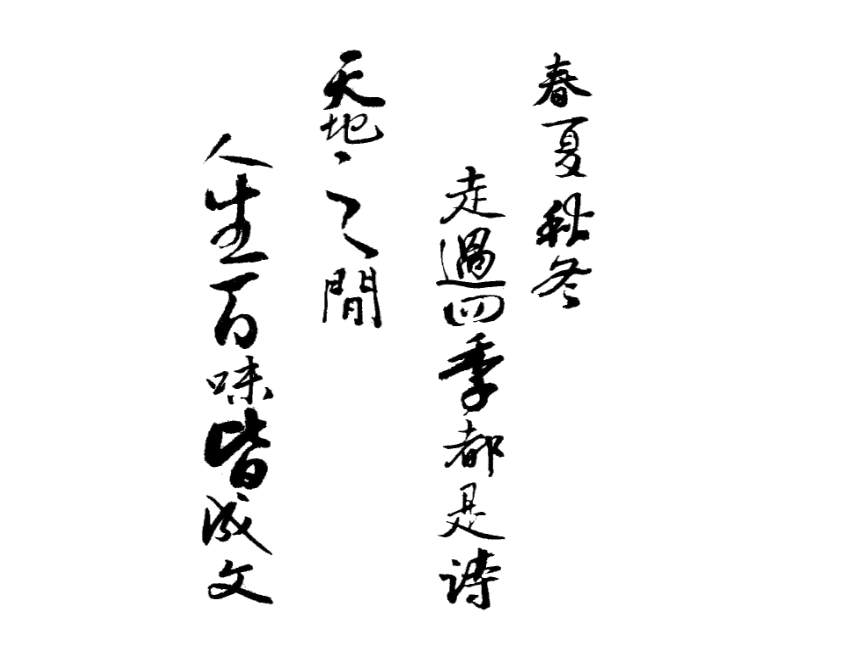 春夏秋冬
走過四季都是詩
天地之間
人生百味皆成文